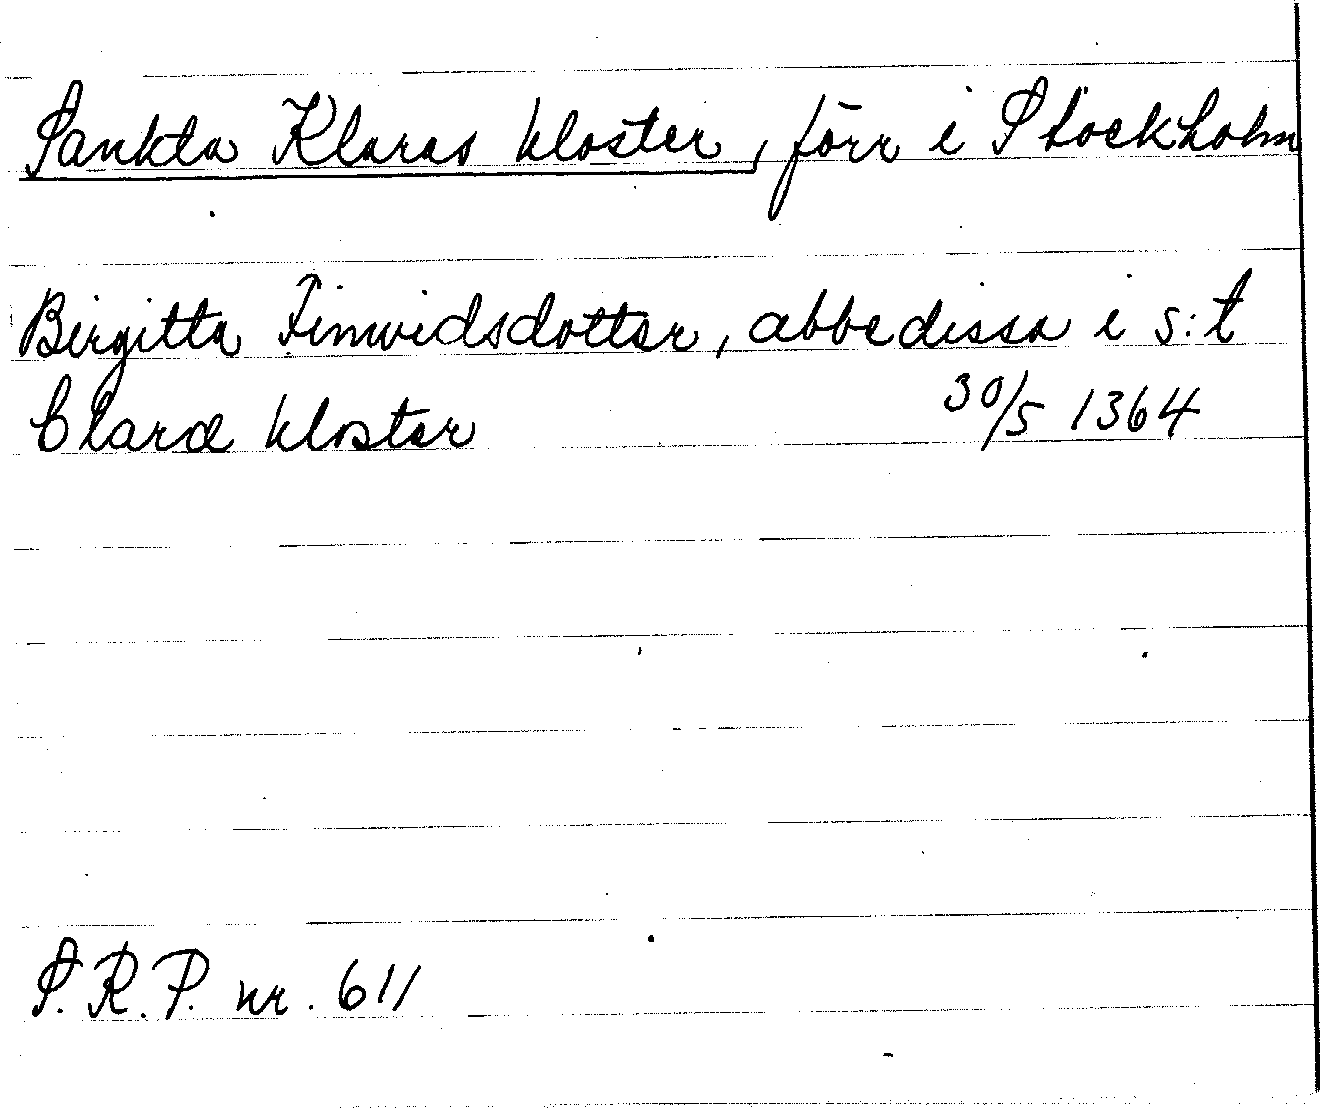 Sankta Klaras kloster, förr i Stockholm
Birgitta Finvidsdotter, abbedissa i s:t
Claræ kloster 30/5 1364
S.R.P. nr. 611